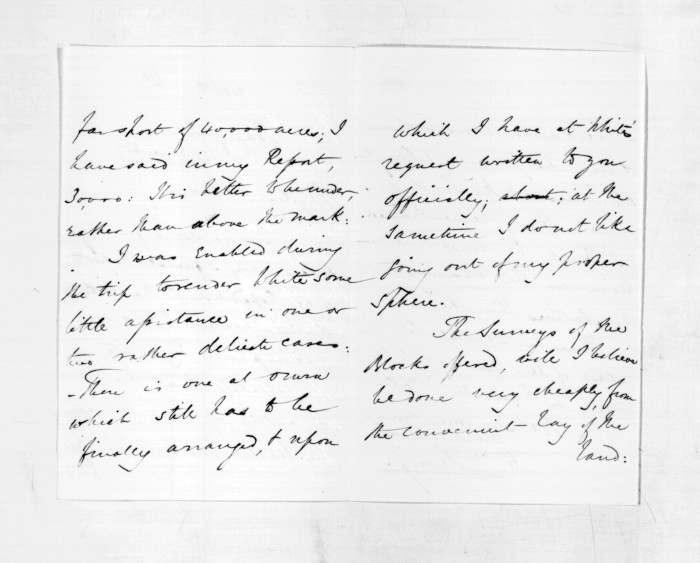 far short of 40,000 acres; I
have said in my Report,
30,000: It is better to be under,
rather than above the mark:
I was enabled during
the trip to render White some
little assistance in one or
two rather delicate cases:
- There is one at
which still has to be
finally arranged, & upon
which I have at White's
request written to you
officially; at the
sametime I do not like
going out of my proper
Sphere.
The Surveys of the
Blocks offered, will I believe
be done very cheaply, from
the convenient lay of the
land: